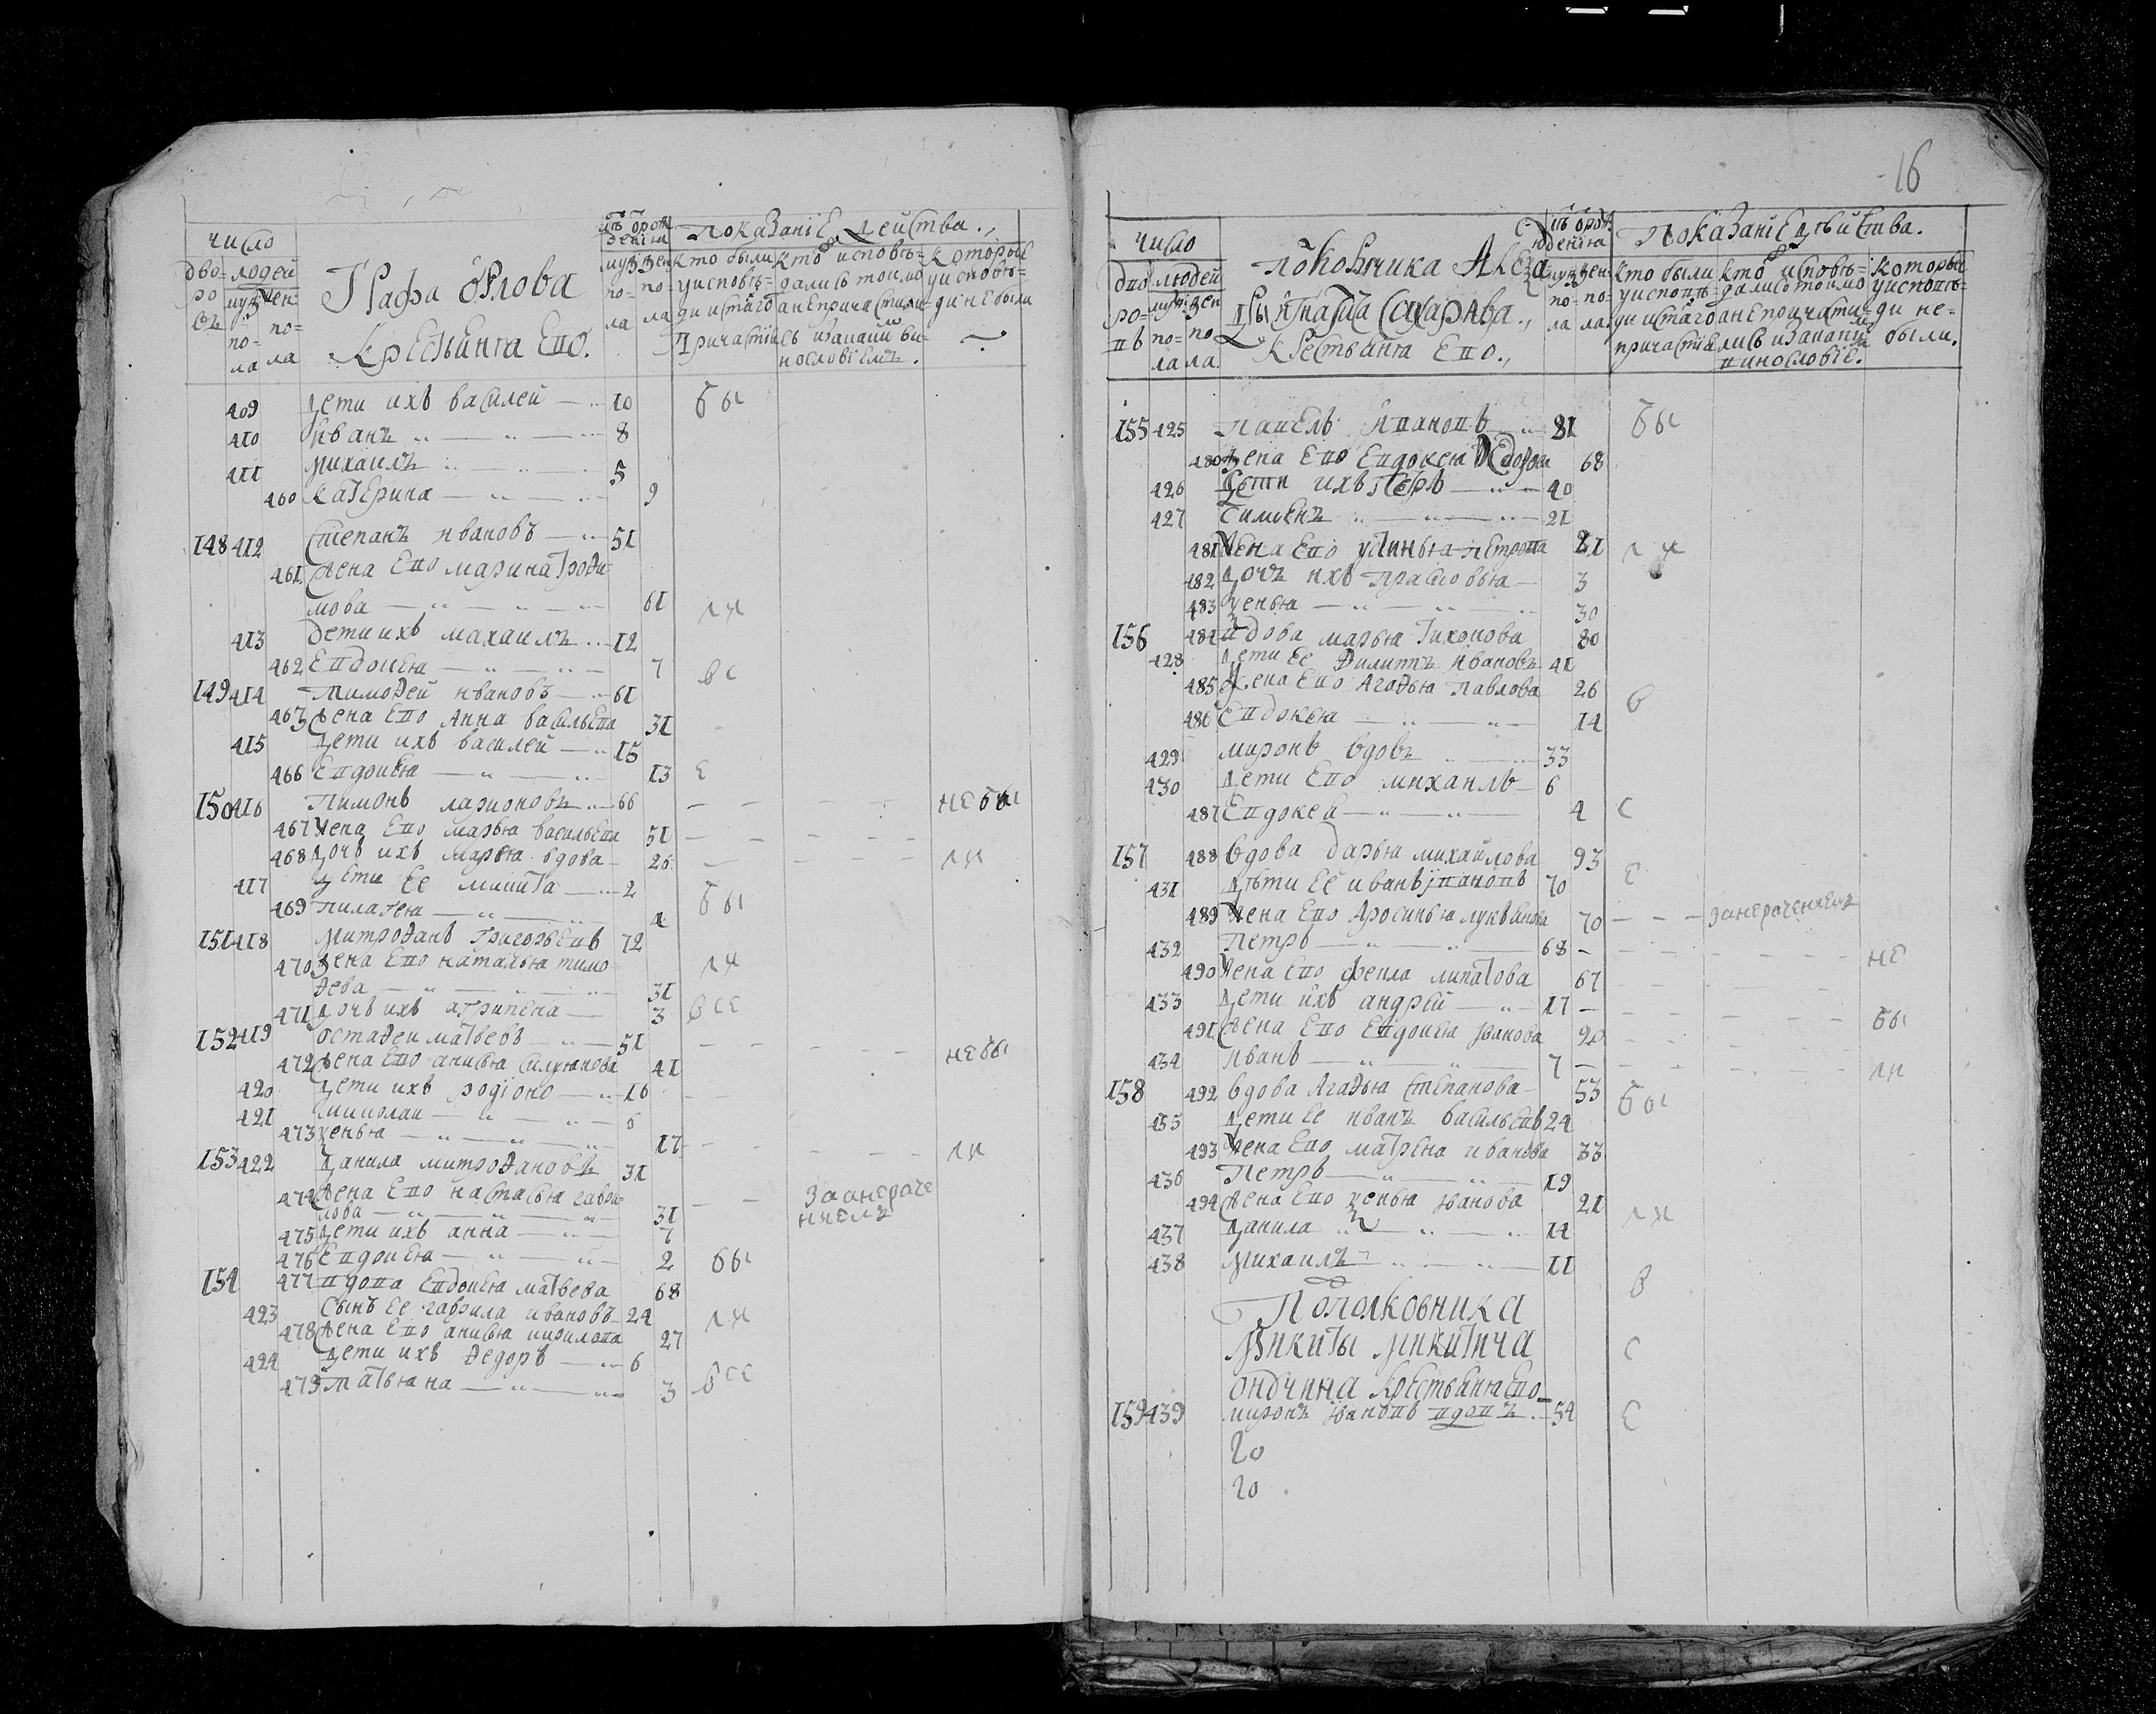 число
дво-
ро
въ
людей
муж
по-
ла
жен
по-
ла
Графа орлова
крестьяня Ево.
муж
по-
ла
жен
по-
ла
показаніЕ действа.,
кто были
уисповѣ-
ди истаго
Причастия
кто исповѣ-
далисъ токмо
анЕпричасти-
сь изакаким ви-
нословіемъ.
которыи
уисповѣ-
ди нЕбыли
409 дети ихъ василей 10 бы
410 иванъ 8
411 михаилъ 5
460 катЕрина 9
148 412 степанъ ивановъ 51
461 жена Ево марина троѳи-
мова 61 ли
413 дети ихъ махаилъ 12
462 Евдокѣя 7 вс
149 414 тимоѳей ивановъ 61
463 жена Ево Анна васильЕва 31
415 дети ихъ василей 15
466 Евдокѣя 13 Е
150 416 пимонъ ларионовъ 66 нЕ бы
467 жена Ево марья васильЕва 51
468 дочь ихъ марья вдова 26 ли
417 дети ЕЕ микита 2
469 пилагея 4 бы
151 418 митроѳанъ григорьЕвъ 72
470 жена Ево наталья тимо
ѳева 31 ли
471 дочь ихъ агрипЕна 3 всЕ
152 419 остаѳеи матвевъ 51 нЕбы
472 жена Ево анисья силуянова 41
420 дети ихъ родіонъ 16
421 николаи 6
473 ѯенья 17
153 422 данила митроѳановъ 31 ли
474 жена Ево настасья гаври-
лова 31
475 дети ихъ анна 7
476 Евдокѣя 2 бы
154 477 вдова Евдокѣя матвева 68
423 сынъ ЕЕ гаврила ивановъ 24 ли
478 жена Ево анисья кирилова 27
424 дети ихъ ѳедоръ 6
479 татьяна 3 всЕ
16
число
дво
ро-
въ
людей
муж
по-
ла
жен
по
ла.
Алеѯа
сахарава.,
крестьяня Ево.,
по-
ла
по-
ла.
показаніЕ дѣйства.
кто были
уисповѣ-
ди истаго
причастія
кто исповѣ-
далисъ токмо
анЕпричасти-
лись
винословіЕ.
которыи
уисповѣ-
ди не-
были.
155 425 павЕлъ ивановъ 81 бы
480 жена Ево Евдокѣя 68
426 дети ихъ петръ 40
427 21
481 жена Ево устинья петрова 21 ли
482 дочь ихъ прасковья 3
483 ѯенья 30
156 484 вдова марья тихонова 80
428 дети ЕЕ ѳилиппъ ивановъ 41
485 жена Ево Агаѳья павлова 26 в
486 Евдокѣя 14
429 миронъ вдовъ 33
430 дети Ево михаилъ 6
487 Евдокея 4 с
157 488 вдова дарья михайлова 93
431 дѣти ЕЕ иванъ ивановъ 70 Е
489 жена Ево Аросинья лукьянова 70
432 петръ 68 нЕ
490 жена Ево ѳекла липатова 67
433 дети ихъ андрѣй 17
491 жена Ево Евдокѣя иванова 20 бы
434 иванъ 7 ли
158 492 вдова Агаѳья стЕпанова 53 бы
435 дети ЕЕ иванъ васильЕвъ 24
493 жена Ево матрЕна иванова 33
436 Петръ 19
494 жена Ево ѯенья иванова 21 ли
437 данила 14
438 михаилъ 11
в
Пополковника
Микиты микитича
с
крестьяня Ево
159 439 миронъ ивановъ вдовъ 54 Е
20
20